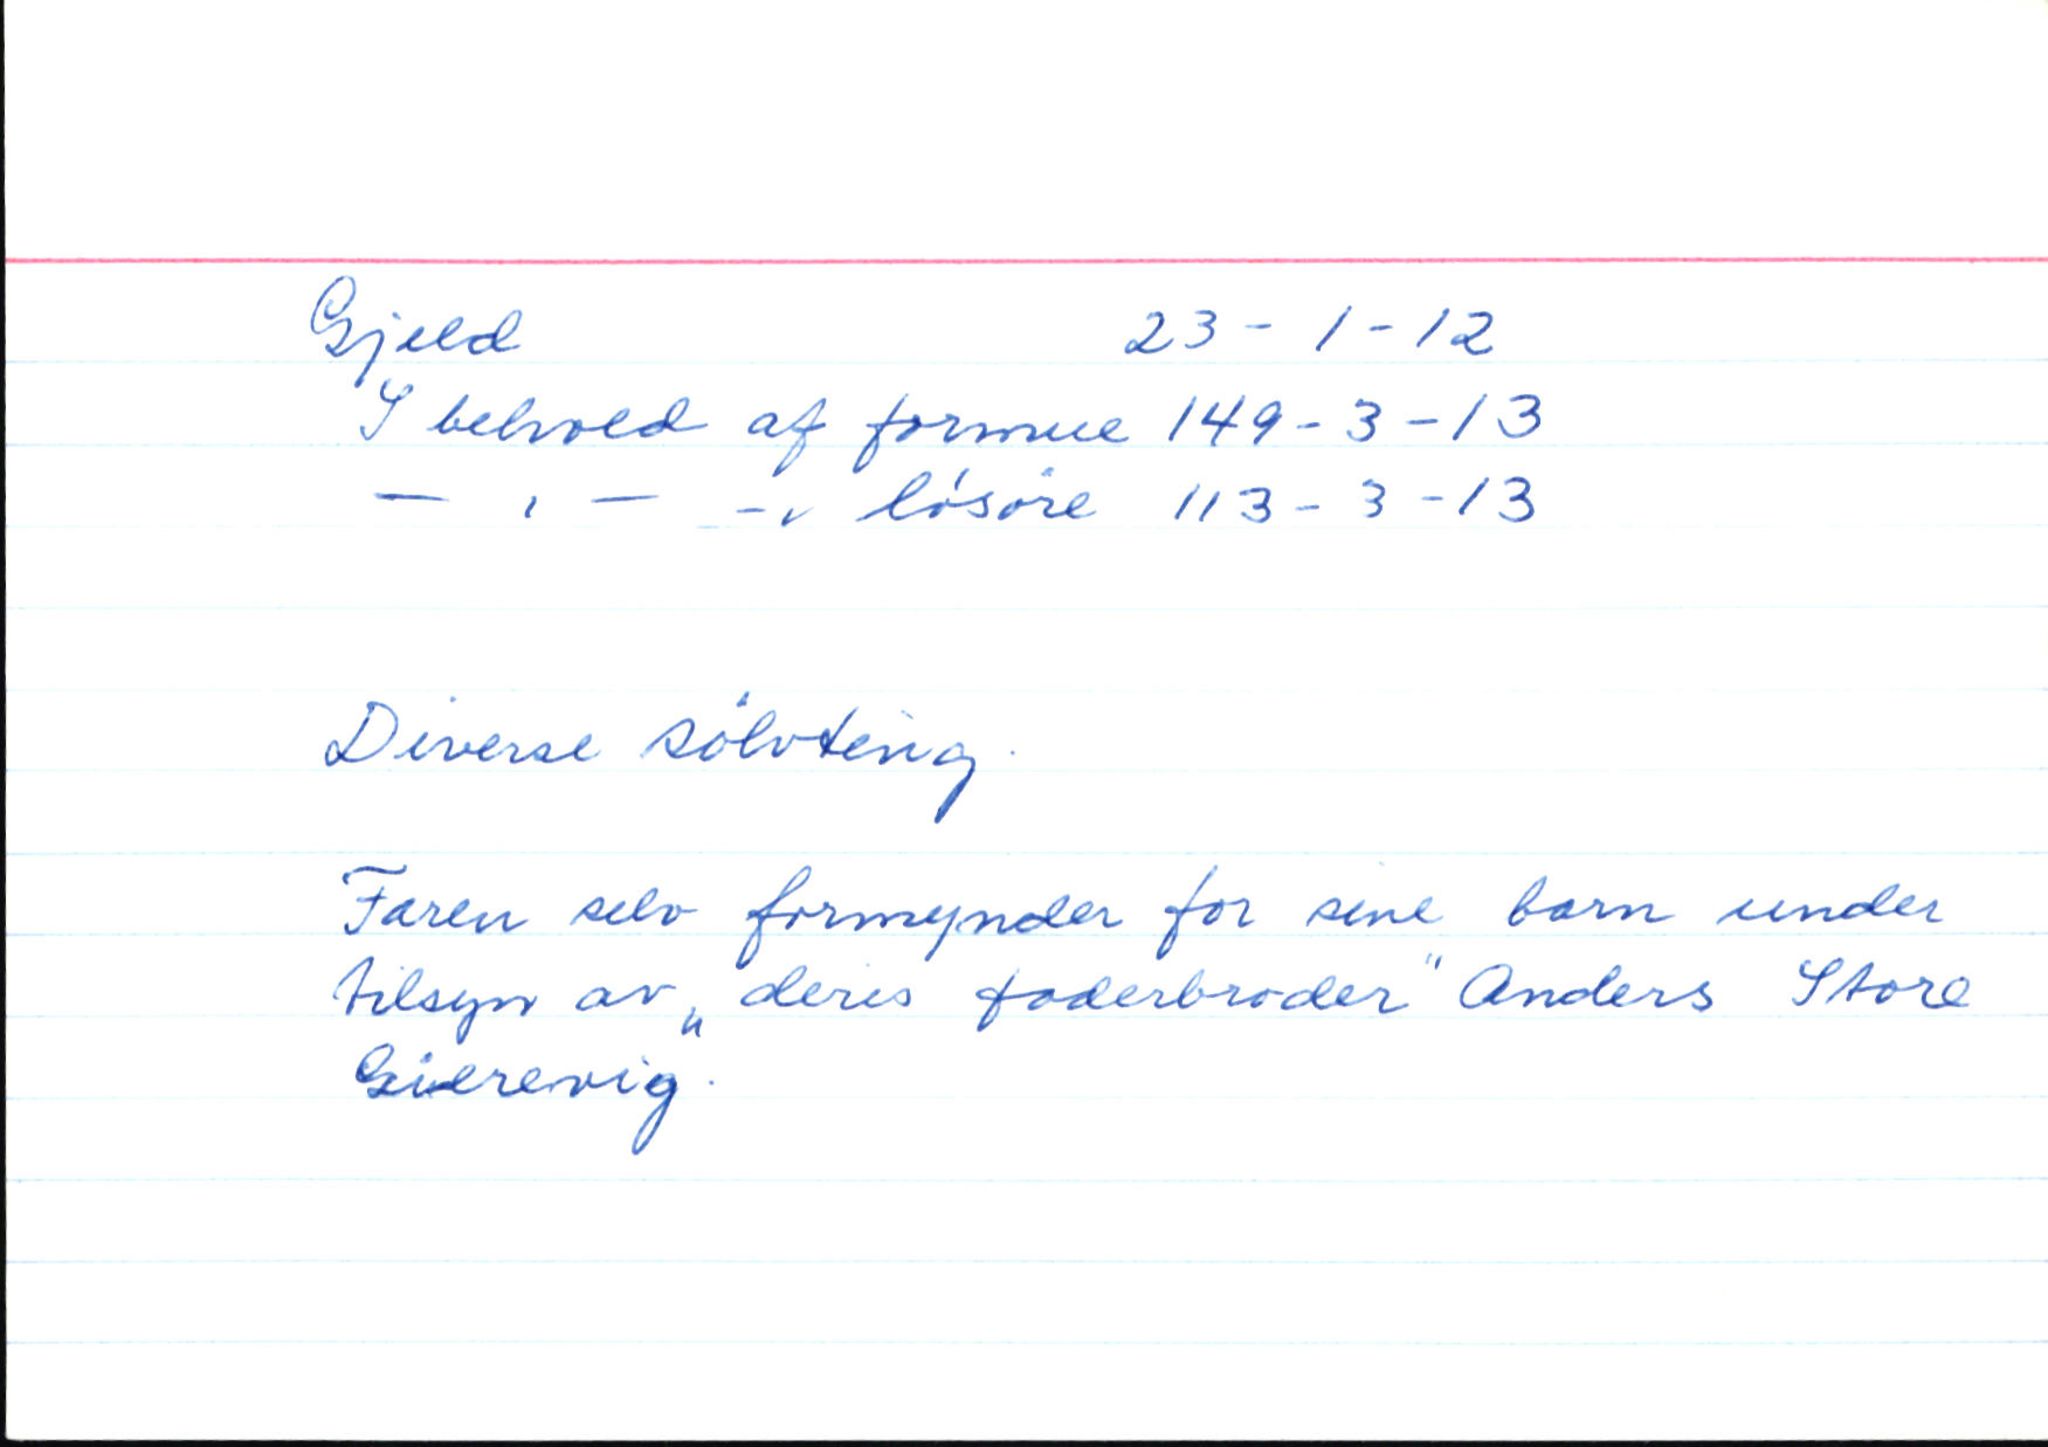 Gjeld 23 - 1 - 12
I behold af formue 149 - 3 - 13
— " — - " løsøre 113 - 3 - 13
Diverse sølvting.
Faren selv formynder for sine barn under
tilsyn av „deres faderbroder" Anders Store
Gierevig.